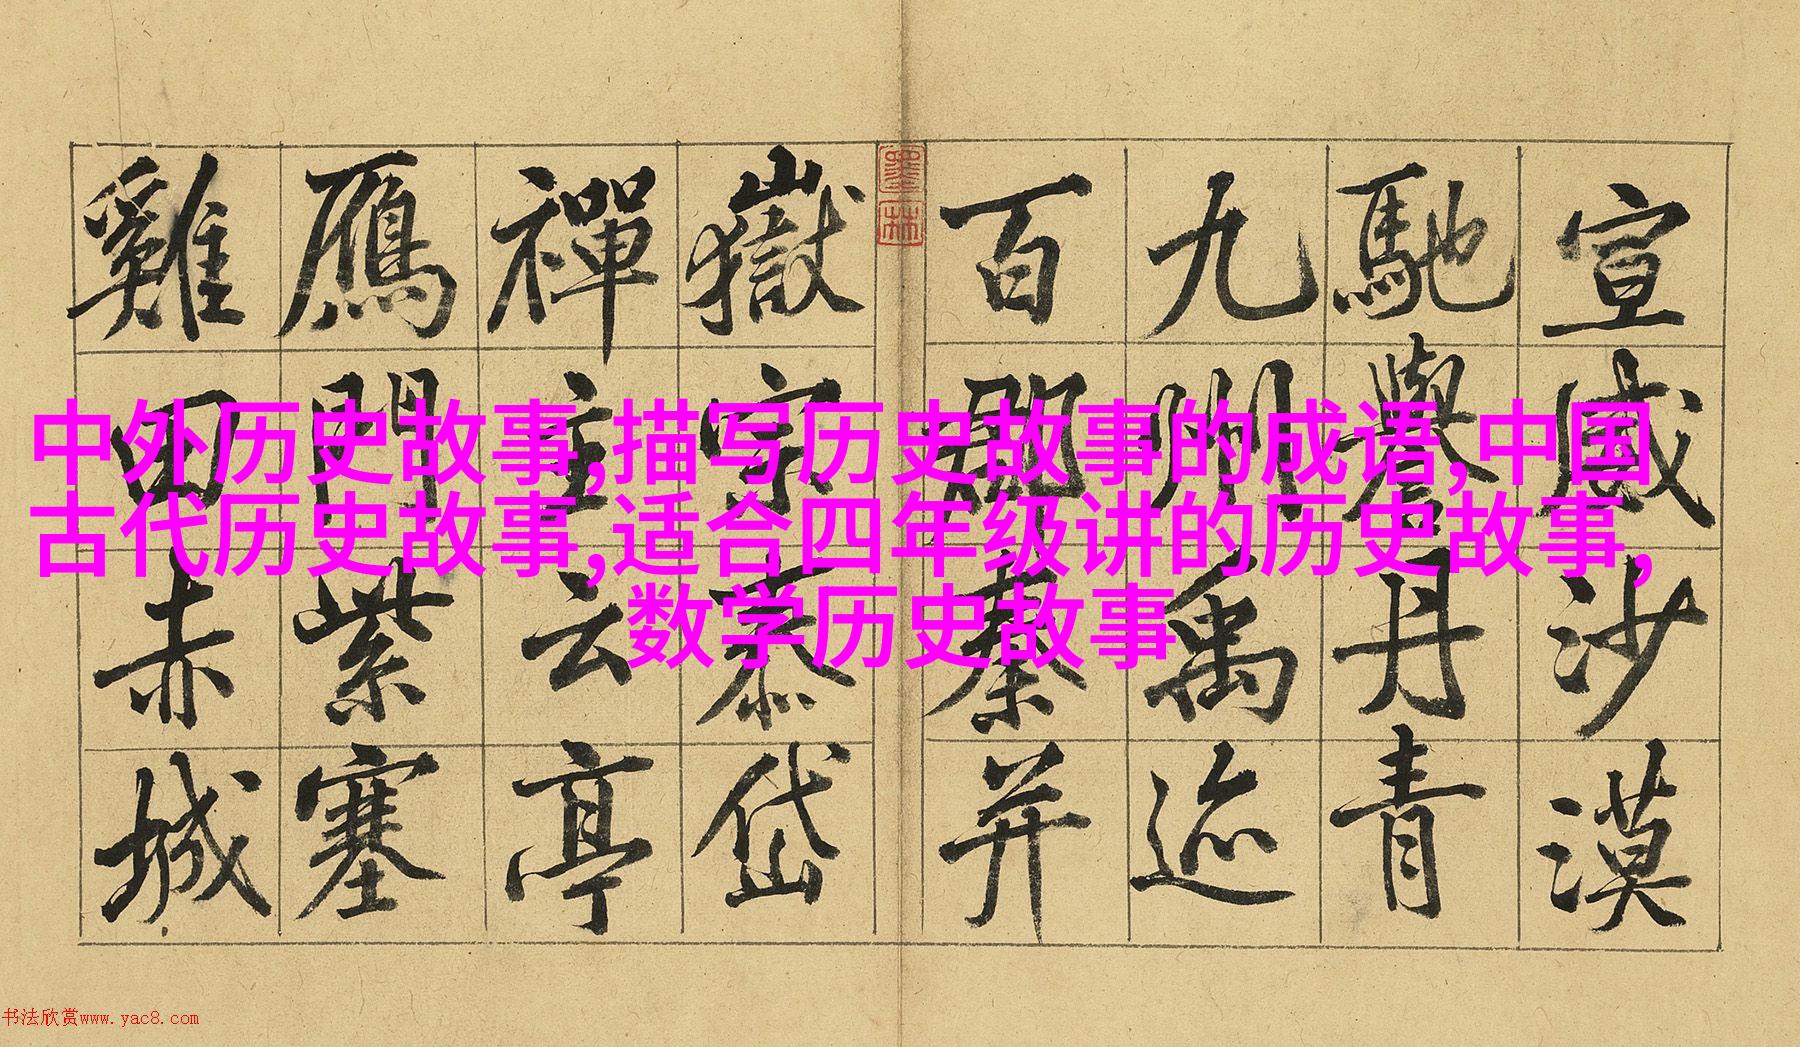 宣威沙漠
馳譽丹青
九州禹迹
百郡秦并
墨林
嶽宗泰岱
禪主云亭
鴈門紫塞
雞田赤城
中外历史故事,描写历史故事的成语,中国
古代历史故事,适合四年级讲的历史故事,
数学历史故事
书法欣赏www.yac8.com